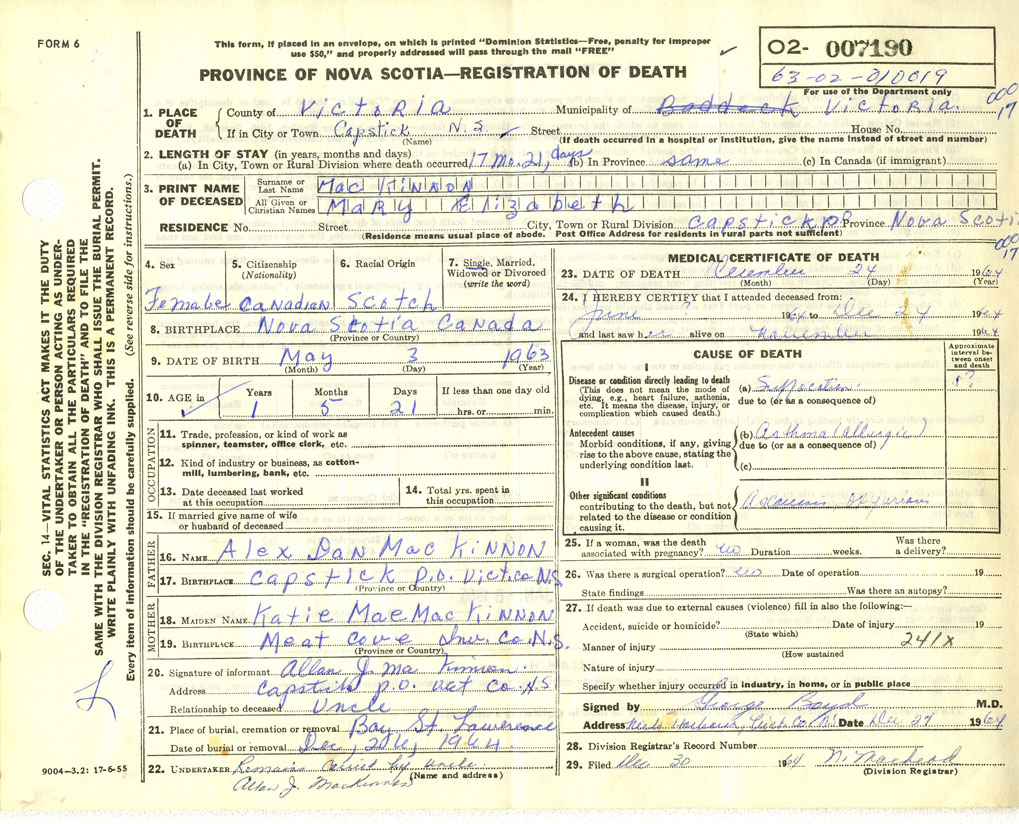 FORM 6
This form, if placed in an envelope, on which is printed "Dominion Statistics—Free, penalty for improper
use $50," and properly addressed will pass through the mail "FREE"
O2- 007190
63-02-010019
For use of the Department only
PROVINCE OF NOVA SCOTIA—REGISTRATION OF DEATH
000
17
1. PLACE OF DEATH
County of Victoria Municipality of Baddeck Victoria.
If in City or Town Capstick N.S. Street House No.
(Name) (If death occurred in a hospital or institution, give the name instead of street and number)
2. LENGTH OF STAY (in years, months and days)
(a) In City, Town or Rural Division where death occurred 17 Mo. 21, days (b) In Province same (c) In Canada (if immigrant)
3. PRINT NAME OF DECEASED
Surname or Last Name Mac Kinnon
All Given or Christian Names Mary Elizabeth
RESIDENCE No. Street City, Town or Rural Division Capstick P.O Province Nova Scoti
(Residence means usual place of abode. Post Office Address for residents in rural parts not sufficient)
000
17
4. Sex 5. Citizenship (Nationality) 6. Racial Origin 7. Single, Married, Widowed or Divorced (write the word)
Female Canadian Scotch
8. BIRTHPLACE Nova Scotia Canada
(Province or Country)
9. DATE OF BIRTH May 3 1963
(Month) (Day) (Year)
10. AGE in Years Months Days If less than one day old
1 5 21 hrs. or min.
OCCUPATION
11. Trade, profession, or kind of work as
spinner, teamster, office clerk, etc.
12. Kind of industry or business, as cotton-
mill, lumbering, bank, etc.
13. Date deceased last worked
at this occupation
14. Total yrs. spent in
this occupation
15. If married give name of wife
or husband of deceased
FATHER
16. NAME Alex Dan Mac Kinnon
17. BIRTHPLACE Capstick P.O. Vict.co N.S
(Province or Country)
MOTHER
18. MAIDEN NAME Katie Mae Mac Kinnon
19. BIRTHPLACE Meat Cove Inv. Co. N.S.
(Province or Country)
20. Signature of informant Allan J. Mac Kinnon.
Address Capstick P.O. Vict Co. N.S
Relationship to deceased Uncle
21. Place of burial, cremation or removal Bay St. Lawrence
Date of burial or removal Dec, 26, 1964.
22. UNDERTAKER Remains by uncle
(Name and address)
Allan J. MacKinnon
MEDICAL CERTIFICATE OF DEATH
23. DATE OF DEATH December 24 1964
(Month) (Day) (Year)
24. I HEREBY CERTIFY that I attended deceased from:
June ? 1964 to Dec 24 1964
and last saw her alive on November 1964
CAUSE OF DEATH
Approximate interval between onset and death
I
Disease or condition directly leading to death
(This does not mean the mode of
dying, e.g., heart failure, asthenia,
etc. It means the disease, injury, or
complication which caused death.)
(a) Suffocation. ?
due to (or as a consequence of)
Antecedent causes
Morbid conditions, if any, giving
rise to the above cause, stating the
underlying condition last.
(b) Asthma (allergic)
due to (or as a consequence of)
(c)
II
Other significant conditions
contributing to the death, but not
related to the disease or condition
causing it.
25. If a woman, was the death
associated with pregnancy? no Duration weeks. Was there a delivery?
26. Was there a surgical operation? no Date of operation 19
State findings Was there an autopsy?
27. If death was due to external causes (violence) fill in also the following:—
Accident, suicide or homicide? Date of injury 19
(State which)
Manner of injury 241X
(How sustained
Nature of injury
Specify whether injury occurred in industry, in home, or in public place
Signed by George Boyd M.D.
Address Neils Harbour, Vict. Co. N.S. Date Dec 27 1964
28. Division Registrar's Record Number
29. Filed Dec 30 1964
(Division Registrar)
SEC. 14—VITAL STATISTICS ACT MAKES IT THE DUTY
OF THE UNDERTAKER OR PERSON ACTING AS UNDER-
TAKER TO OBTAIN ALL THE PARTICULARS REQUIRED
IN THE "REGISTRATION OF DEATH" AND TO FILE THE
SAME WITH THE DIVISION REGISTRAR WHO SHALL ISSUE THE BURIAL PERMIT.
WRITE PLAINLY WITH UNFADING INK. THIS IS A PERMANENT RECORD.
Every item of information should be carefully supplied. (See reverse side for instructions.)
9004-3.2: 17-6-55